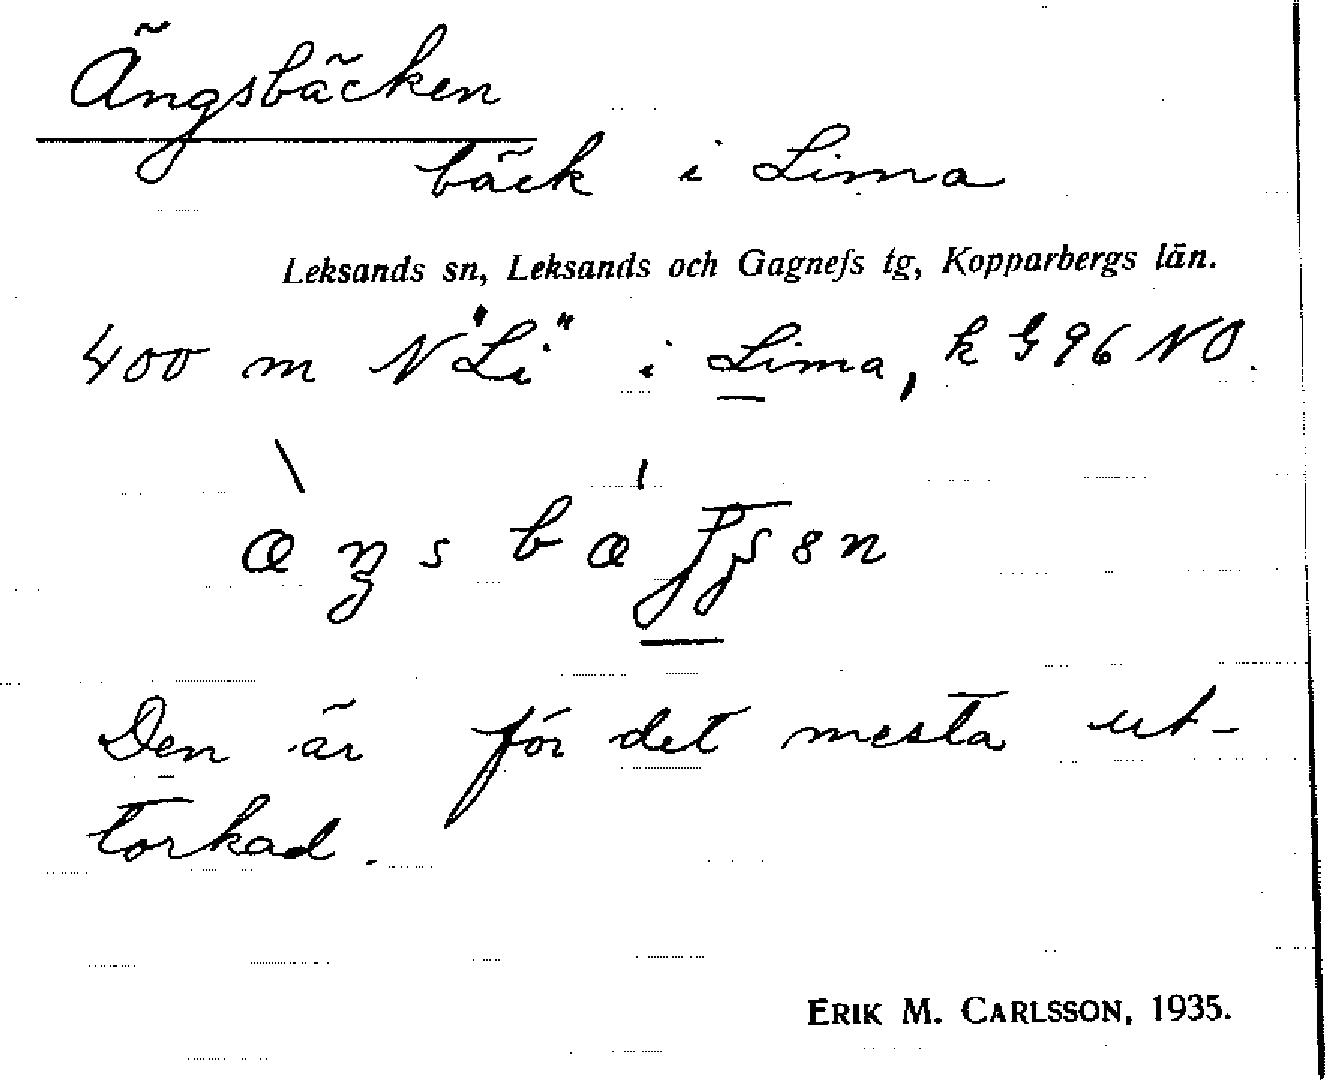 Ängsbäcken
bäck i Lima
Leksands sn, Leksands och Gagnefs tg, Kopparbergs län.
400 m N "Li" i Lima, k G 96 NO.
Den är för det mesta ut-
torkad.
ERIK M. CARLSSON, 1935.